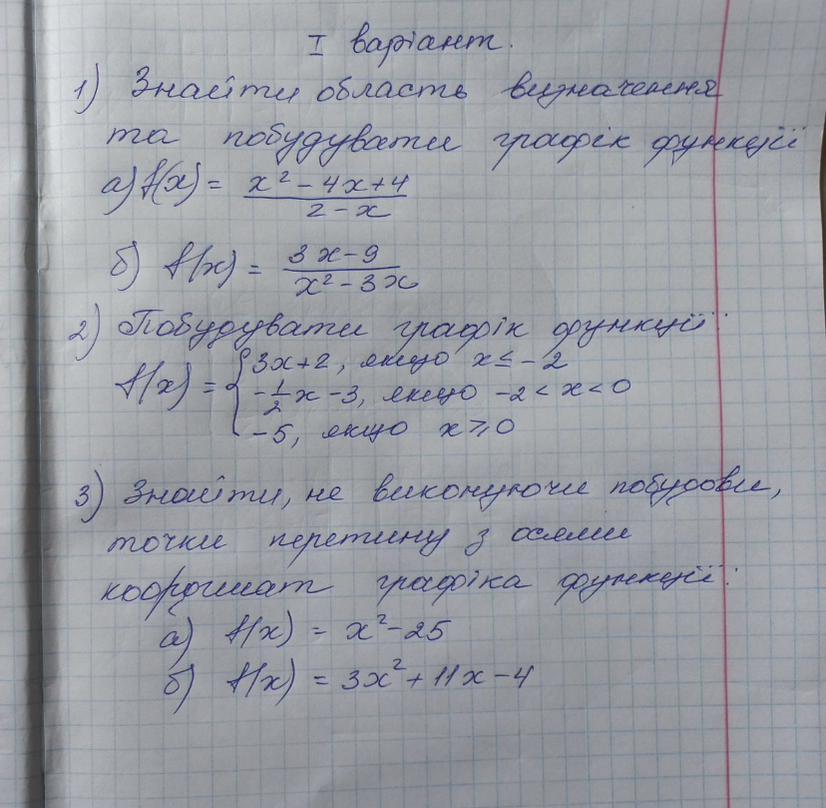 I варіант.
1) Знайти область визначення
та побудувати графік функції
а) f(x) = (x² - 4x + 4)/(2 - x)
б) f(x) = (3x - 9)/(x² - 3x)
2) Побудувати графік функції:
f(x) = { 3x + 2, якщо x ≤ -2
-1/2 x - 3, якщо -2 < x < 0
-5, якщо x ⩾ 0
3) Знайти, не виконуючи побудови,
точки перетину з осями
координат графіка функції:
а) f(x) = x² - 25
б) f(x) = 3x² + 11x - 4